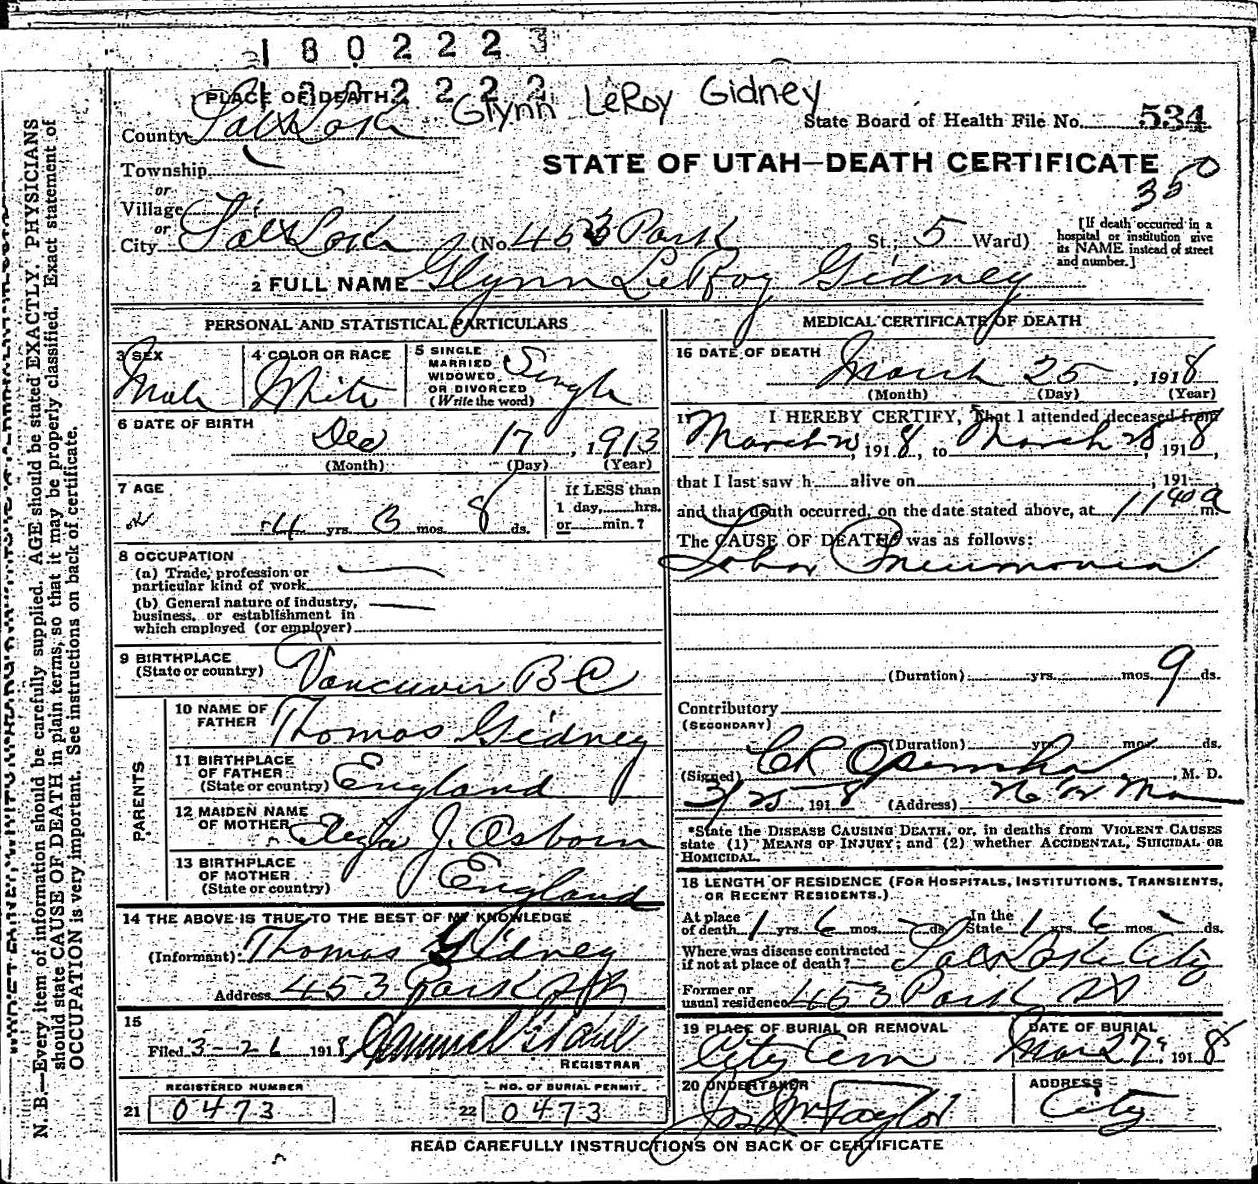 180222
PLACE OF DEATH
Glynn LeRoy Gidney
County Salt Lake
State Board of Health File No. 534
STATE OF UTAH—DEATH CERTIFICATE
Township
350
or
Village
or
City Salt Lake (No. 453 Park St.; 5 Ward)
[If death occurred in a hospital or institution give its NAME instead of street and number.]
2 FULL NAME Glynn LeRoy Gidney
PERSONAL AND STATISTICAL PARTICULARS
3 SEX
Male
4 COLOR OR RACE
White
5 SINGLE MARRIED WIDOWED OR DIVORCED (Write the word)
Single
6 DATE OF BIRTH
Dec 17, 1913
(Month) (Day) (Year)
7 AGE
4 yrs. 3 mos. 8 ds.
If LESS than 1 day, hrs. or min.?
8 OCCUPATION
(a) Trade, profession or particular kind of work
(b) General nature of industry, business, or establishment in which employed (or employer)
9 BIRTHPLACE
(State or country) Vancuver B C
PARENTS
10 NAME OF FATHER Thomas Gidney
11 BIRTHPLACE OF FATHER (State or country) England
12 MAIDEN NAME OF MOTHER J. Osborn
13 BIRTHPLACE OF MOTHER (State or country) England
14 THE ABOVE IS TRUE TO THE BEST OF MY KNOWLEDGE
(Informant) Thomas Gidney
Address 453 Park
15
Filed 3-26 1918
REGISTRAR
REGISTERED NUMBER
21 0473
NO. OF BURIAL PERMIT
22 0473
MEDICAL CERTIFICATE OF DEATH
16 DATE OF DEATH
March 25, 1918
(Month) (Day) (Year)
17 I HEREBY CERTIFY, That I attended deceased from
March 1918, to March 25, 1918,
that I last saw h alive on , 191
and that death occurred, on the date stated above, at 11 40 a m.
The CAUSE OF DEATH* was as follows:
Lobar Pneumonia
(Duration) yrs. mos. 9 ds.
Contributory
(SECONDARY)
(Duration) yrs. mos. ds.
(Signed) , M. D.
3/25, 1918 (Address)
*State the DISEASE CAUSING DEATH, or, in deaths from VIOLENT CAUSES
state (1) MEANS OF INJURY; and (2) whether ACCIDENTAL, SUICIDAL OR
HOMICIDAL.
18 LENGTH OF RESIDENCE (FOR HOSPITALS, INSTITUTIONS, TRANSIENTS,
OR RECENT RESIDENTS.)
At place of death 1 yrs. 6 mos. - ds. In the State 1 yrs. 6 mos. - ds.
Where was disease contracted if not at place of death? Salt Lake City
Former or usual residence 453 Park St
19 PLACE OF BURIAL OR REMOVAL
City Cem
DATE OF BURIAL
Mar 27, 1918
20 UNDERTAKER
Jos Wm Taylor
ADDRESS
City
READ CAREFULLY INSTRUCTIONS ON BACK OF CERTIFICATE
N. B.—Every item of information should be carefully supplied. AGE should be stated EXACTLY. PHYSICIANS
should state CAUSE OF DEATH in plain terms, so that it may be properly classified. Exact statement of
OCCUPATION is very important. See instructions on back of certificate.